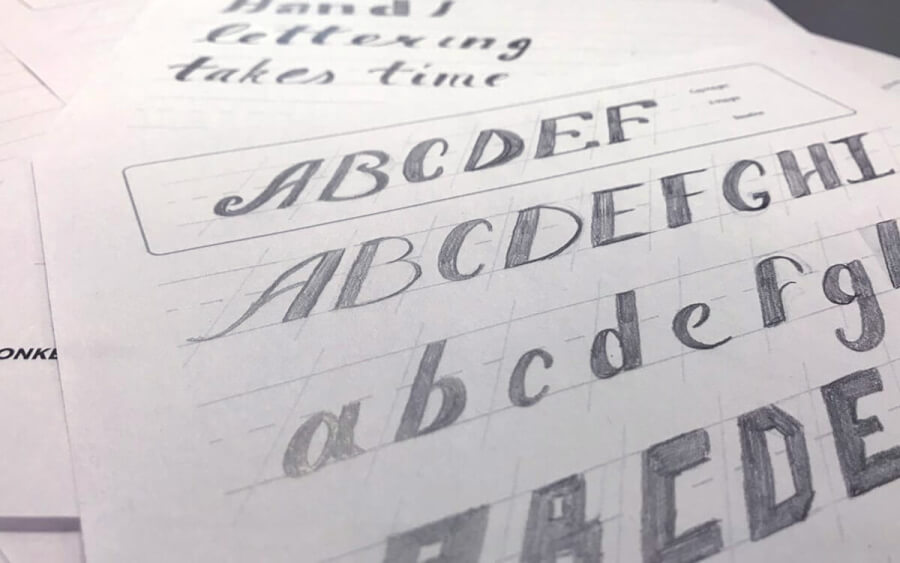 Hands
lettering
takes time
ABCDEF
ABCDEFGHI
abcdefg
ONKE
ABCDE